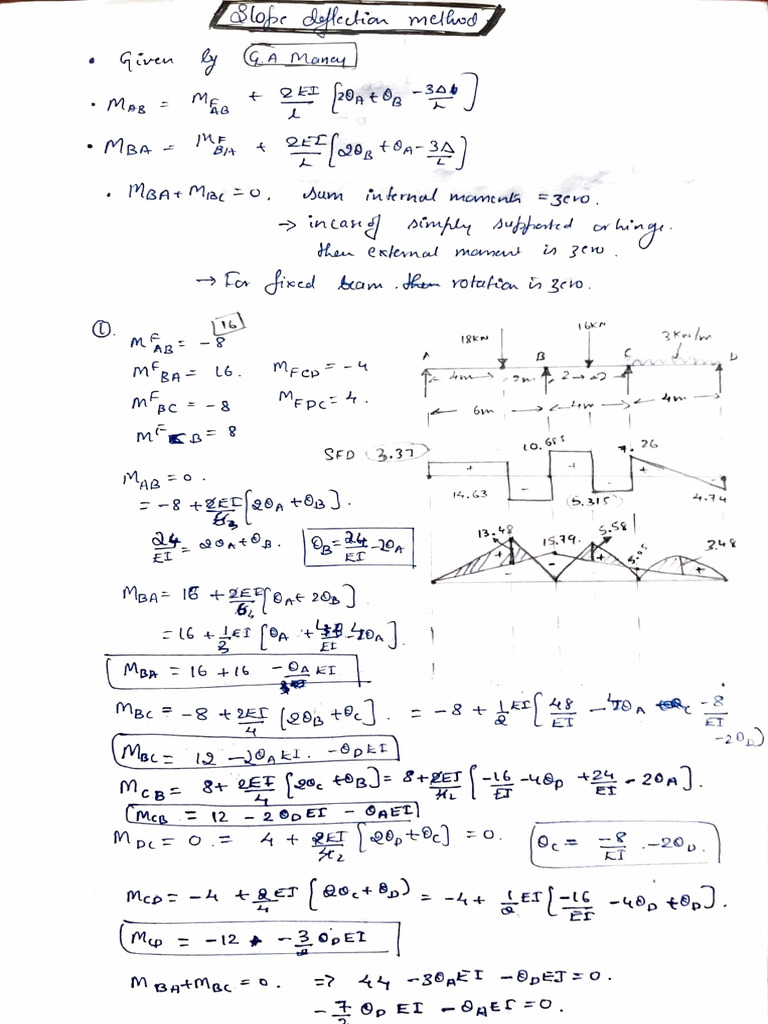 Slope deflection method
• Given by G.A Maney
• M_AB = M^F_AB + 2EI/L [2θ_A + θ_B - 3Δ/L]
• M_BA = M^F_BA + 2EI/L [2θ_B + θ_A - 3Δ/L]
• M_BA + M_BC = 0. sum internal moments = zero.
→ in case of simply supported or hinge.
then external moment is zero.
→ For fixed beam. then rotation is zero.
①. 16
M^F_AB = -8
M^F_BA = 16. M_FCD = -4
M^F_BC = -8 M_FDC = 4.
M^F_CB = 8
18KN 16KN 3KN/m
A B C D
4m 2m 2 2 4m
6m 4m
SFD 3.37 10.685 7.26
+ + +
14.63 - - 5.315 4.74
13.48 15.79. 5.58 5.05 3.48
+ - - + +
M_AB = 0.
= -8 + 2EI/6 3 [2θ_A + θ_B].
24/EI = 2θ_A + θ_B. θ_B = 24/EI - 2θ_A
M_BA = 16 + 2EI/6 [θ_A + 2θ_B]
= 16 + 1/3 EI [θ_A + 48/EI - 4θ_A].
M_BA = 16 + 16 - θ_A EI
M_BC = -8 + 2EI/4 [2θ_B + θ_C]. = -8 + 1/2 EI [48/EI - 4θ_A - 8/EI - 2θ_D]
M_BC = 12 - 2θ_A EI. - θ_D EI
M_CB = 8 + 2EI/4 [2θ_C + θ_B] = 8 + 2EI/4 2 [-16/EI - 4θ_D + 24/EI - 2θ_A].
M_CB = 12 - 2θ_D EI - θ_A EI
M_DC = 0. = 4 + 2EI/4 2 [2θ_D + θ_C] = 0. θ_C = -8/EI . - 2θ_D.
M_CD = -4 + 2EI/4 [2θ_C + θ_D) = -4 + 1/2 EI [-16/EI - 4θ_D + θ_D].
M_CD = -12 - 3/2 θ_D EI
M_BA + M_BC = 0. ⇒ 44 - 3θ_A EI - θ_D EI = 0.
- 7/2 θ_D EI - θ_A EI = 0.